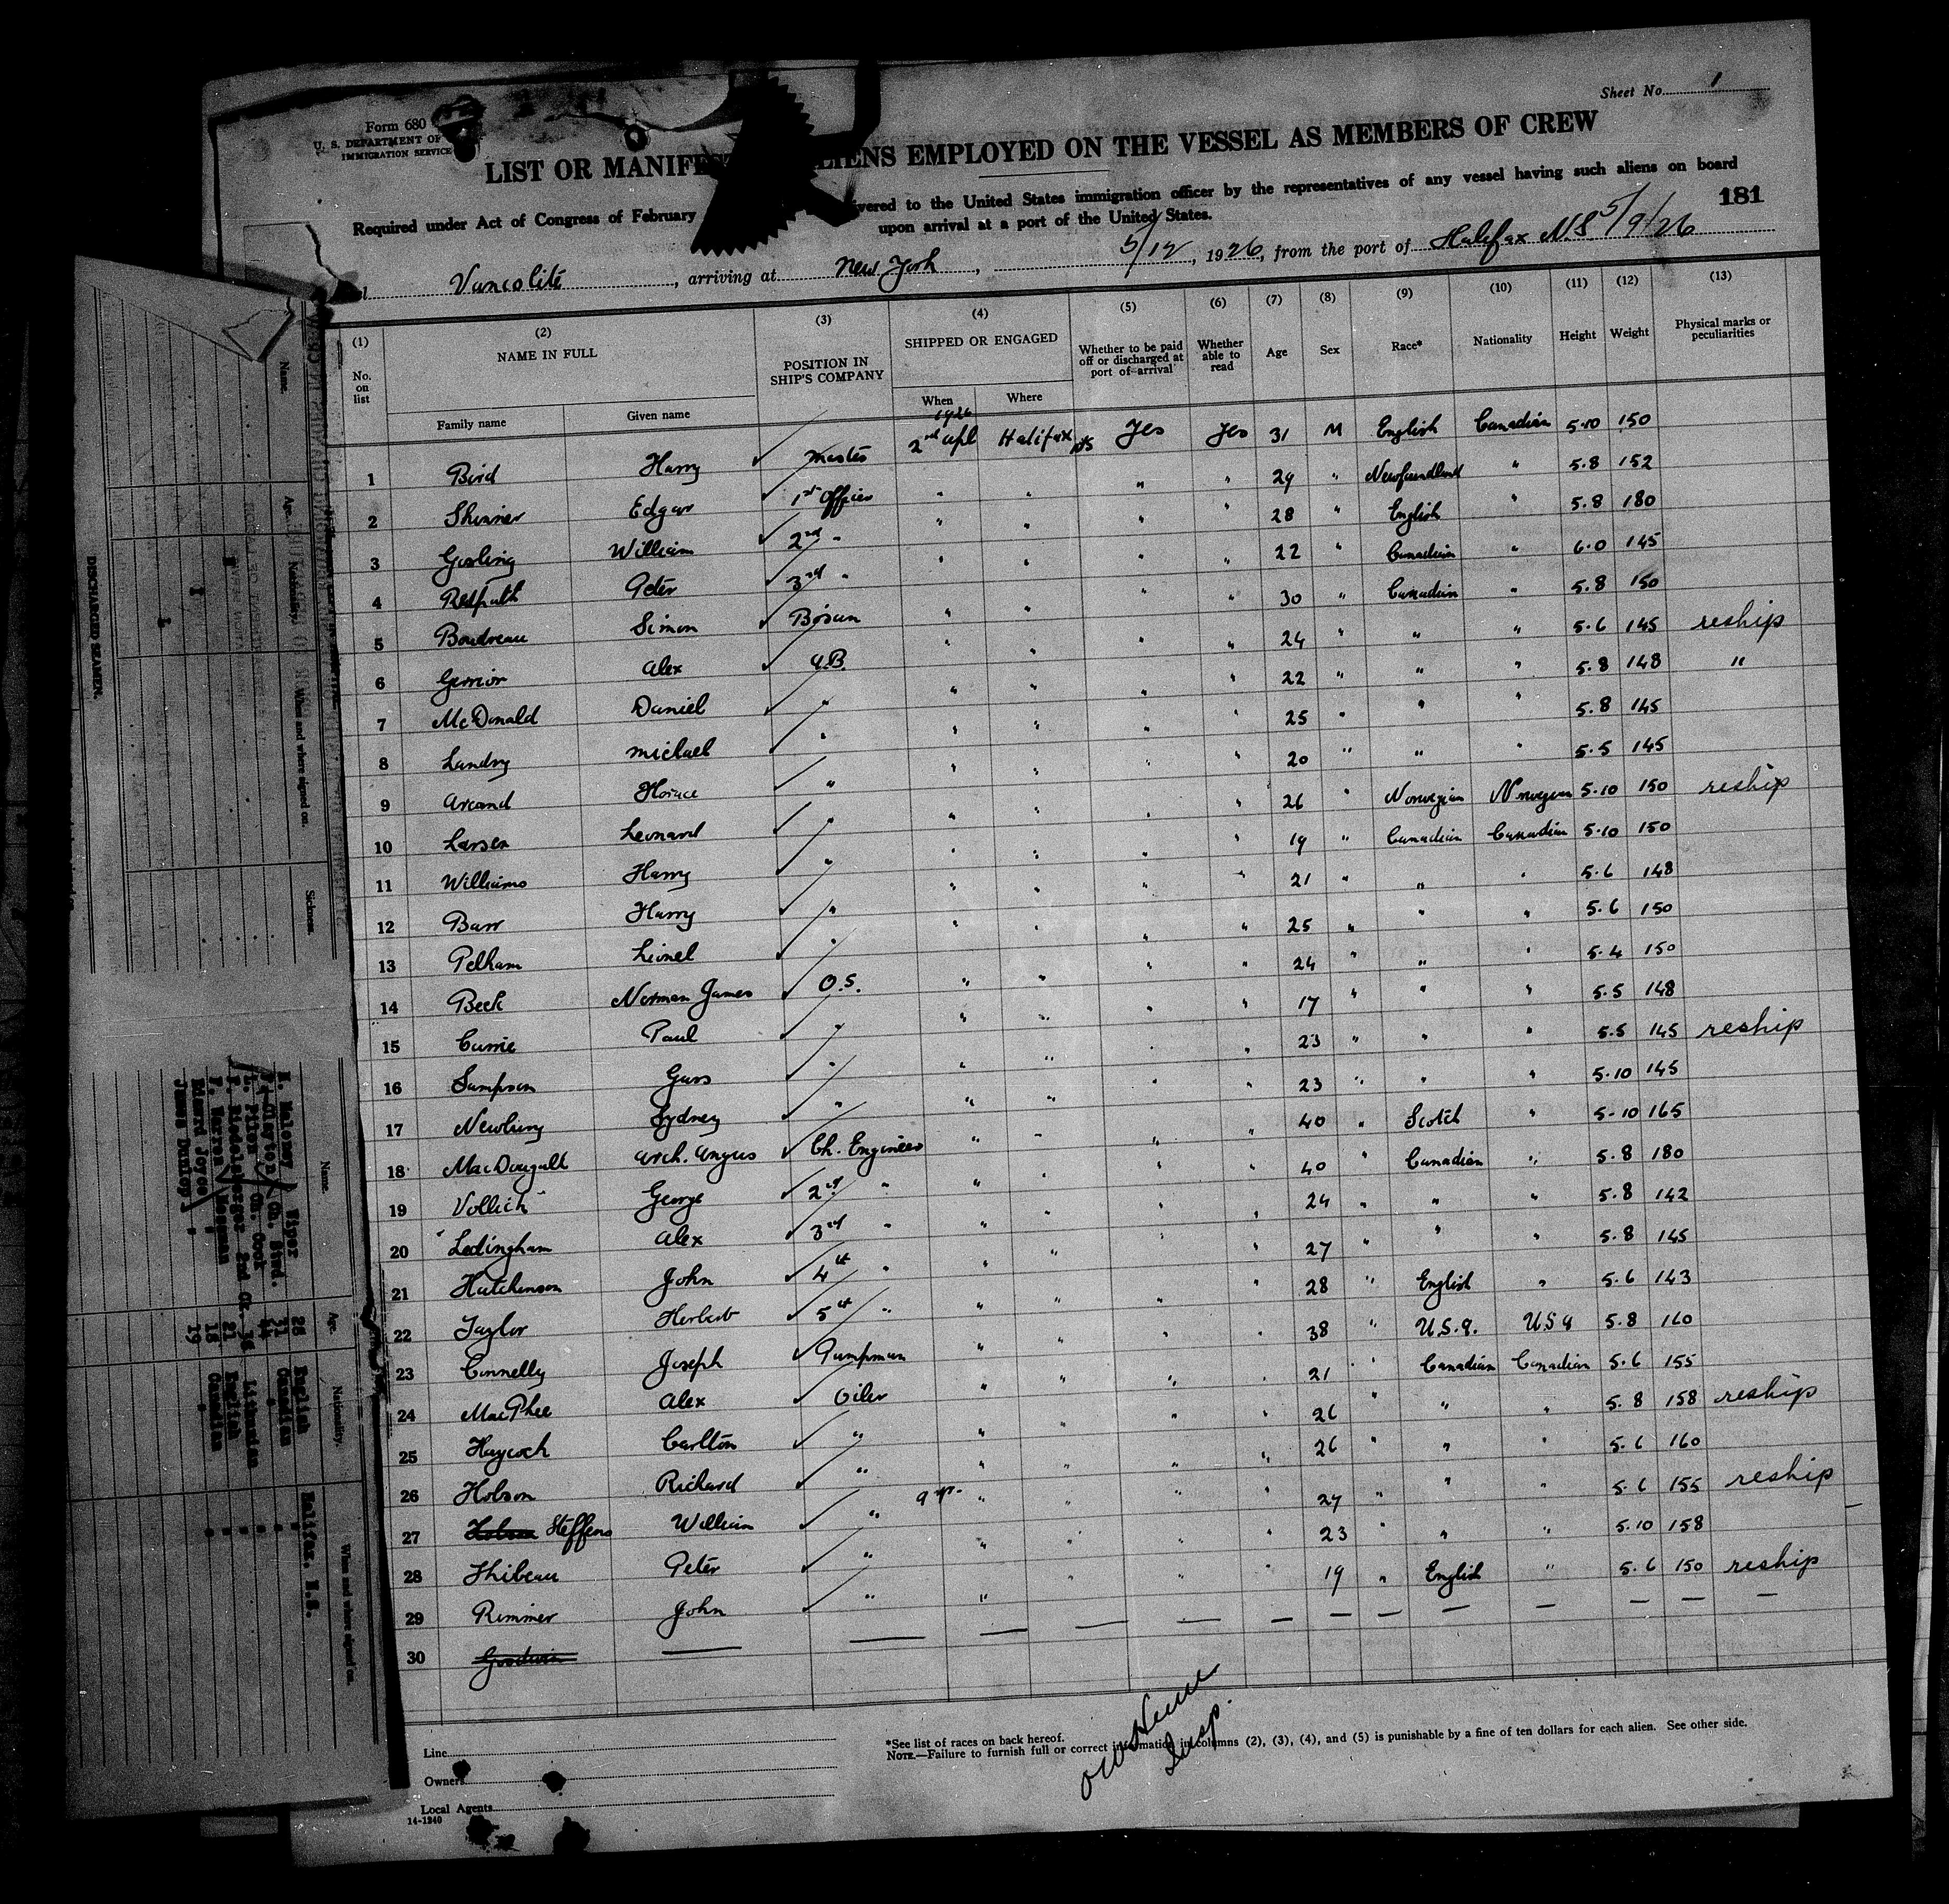 Sheet No. 1
Form 680
U. S. DEPARTMENT OF
IMMIGRATION SERVICE
LIST OR MANIFE LIENS EMPLOYED ON THE VESSEL AS MEMBERS OF CREW
Required under Act of Congress of February ivered to the United States immigration officer by the representatives of any vessel having such aliens on board
upon arrival at a port of the United States.
181
el Vancolite, arriving at New York, 5/12, 1926, from the port of Halifax N.S 5/9/26
(1) (2) (3) (4) (5) (6) (7) (8) (9) (10) (11) (12) (13)
No. on list NAME IN FULL POSITION IN SHIP'S COMPANY SHIPPED OR ENGAGED Whether to be paid off or discharged at port of arrival Whether able to read Age Sex Race* Nationality Height Weight Physical marks or peculiarities
Family name Given name When Where
1926
1 Bird Harry Master 2nd Apl Halifax NS Yes Yes 31 M English Canadian 5-10 150
2 Skinner Edgar 1st Officer " " " " 29 " Newfoundland " 5.8 152
3 Gosling William 2nd " " " " " 28 " English " 5.8 180
4 Redpath Peter 3rd " " " " " 22 " Canadian " 6.0 145
5 Boudreau Simon Bosun " " " " 30 " Canadian " 5.8 150
6 Gerrior Alex A.B. " " " " 24 " " " 5.6 145 reship
7 McDonald Daniel " " " " " 22 " " " 5.8 148 "
8 Landry Michael " " " " " 25 " " " 5.8 145
9 Arcand Horace " " " " " 20 " " " 5.5 145
10 Larsen Leonard " " " " " 26 " Norwegian Norwegian 5-10 150 reship
11 Williams Harry " " " " " 19 " Canadian Canadian 5-10 150
12 Barr Harry " " " " " 21 " " " 5.6 148
13 Pelham Lionel " " " " " 25 " " " 5.6 150
14 Beck Norman James O.S. " " " " 24 " " " 5.4 150
15 Currie Paul " " " " " 17 " " " 5.5 148
16 Sampson Guss " " " " " 23 " " " 5.5 145 reship
17 Newbury Sydney " " " " " 23 " " " 5-10 145
18 MacDougall Arch. Angus Ch. Engineer " " " " 40 " Scotch " 5-10 165
19 Vollick George 2nd " " " " " 40 " Canadian " 5.8 180
20 Ledingham Alex 3rd " " " " " 24 " " " 5.8 142
21 Hutchinson John 4th " " " " " 27 " " " 5.8 145
22 Taylor Herbert 5th " " " " " 28 " English " 5.6 143
23 Connelly Joseph Pumpman " " " " 38 " U.S.A. USA 5.8 160
24 MacPhee Alex Oiler " " " " 21 " Canadian Canadian 5.6 155
25 Haycock Carlton " " " " " 26 " " " 5.8 158 reship
26 Hobson Richard " " " " " 26 " " " 5.6 160
27 Steffens William " " " " 27 " " " 5.6 155 reship
28 Thibeau Peter " " " " " 23 " " " 5.10 158
29 Rimmer John " " " " " 19 " English " 5.6 150 reship
30 Goodwin
Line
Owners
Local Agents
14-1240
*See list of races on back hereof.
NOTE.—Failure to furnish full or correct information in columns (2), (3), (4), and (5) is punishable by a fine of ten dollars for each alien. See other side.
Insp.
DISCHARGED SEAMEN.
Name. Age. Nationality. When and where signed on. Sickness.
Name. Age. Nationality. When and where signed on.
Maloney Wiper 26 English Halifax, N.S.
Clayton Ch. Stwd. Canadian "
Piton Ch. Cook "
Lithuanian "
Herron Messman 21 English "
Edward Joyce " 18 Canadian "
James Dunlop " 19 "